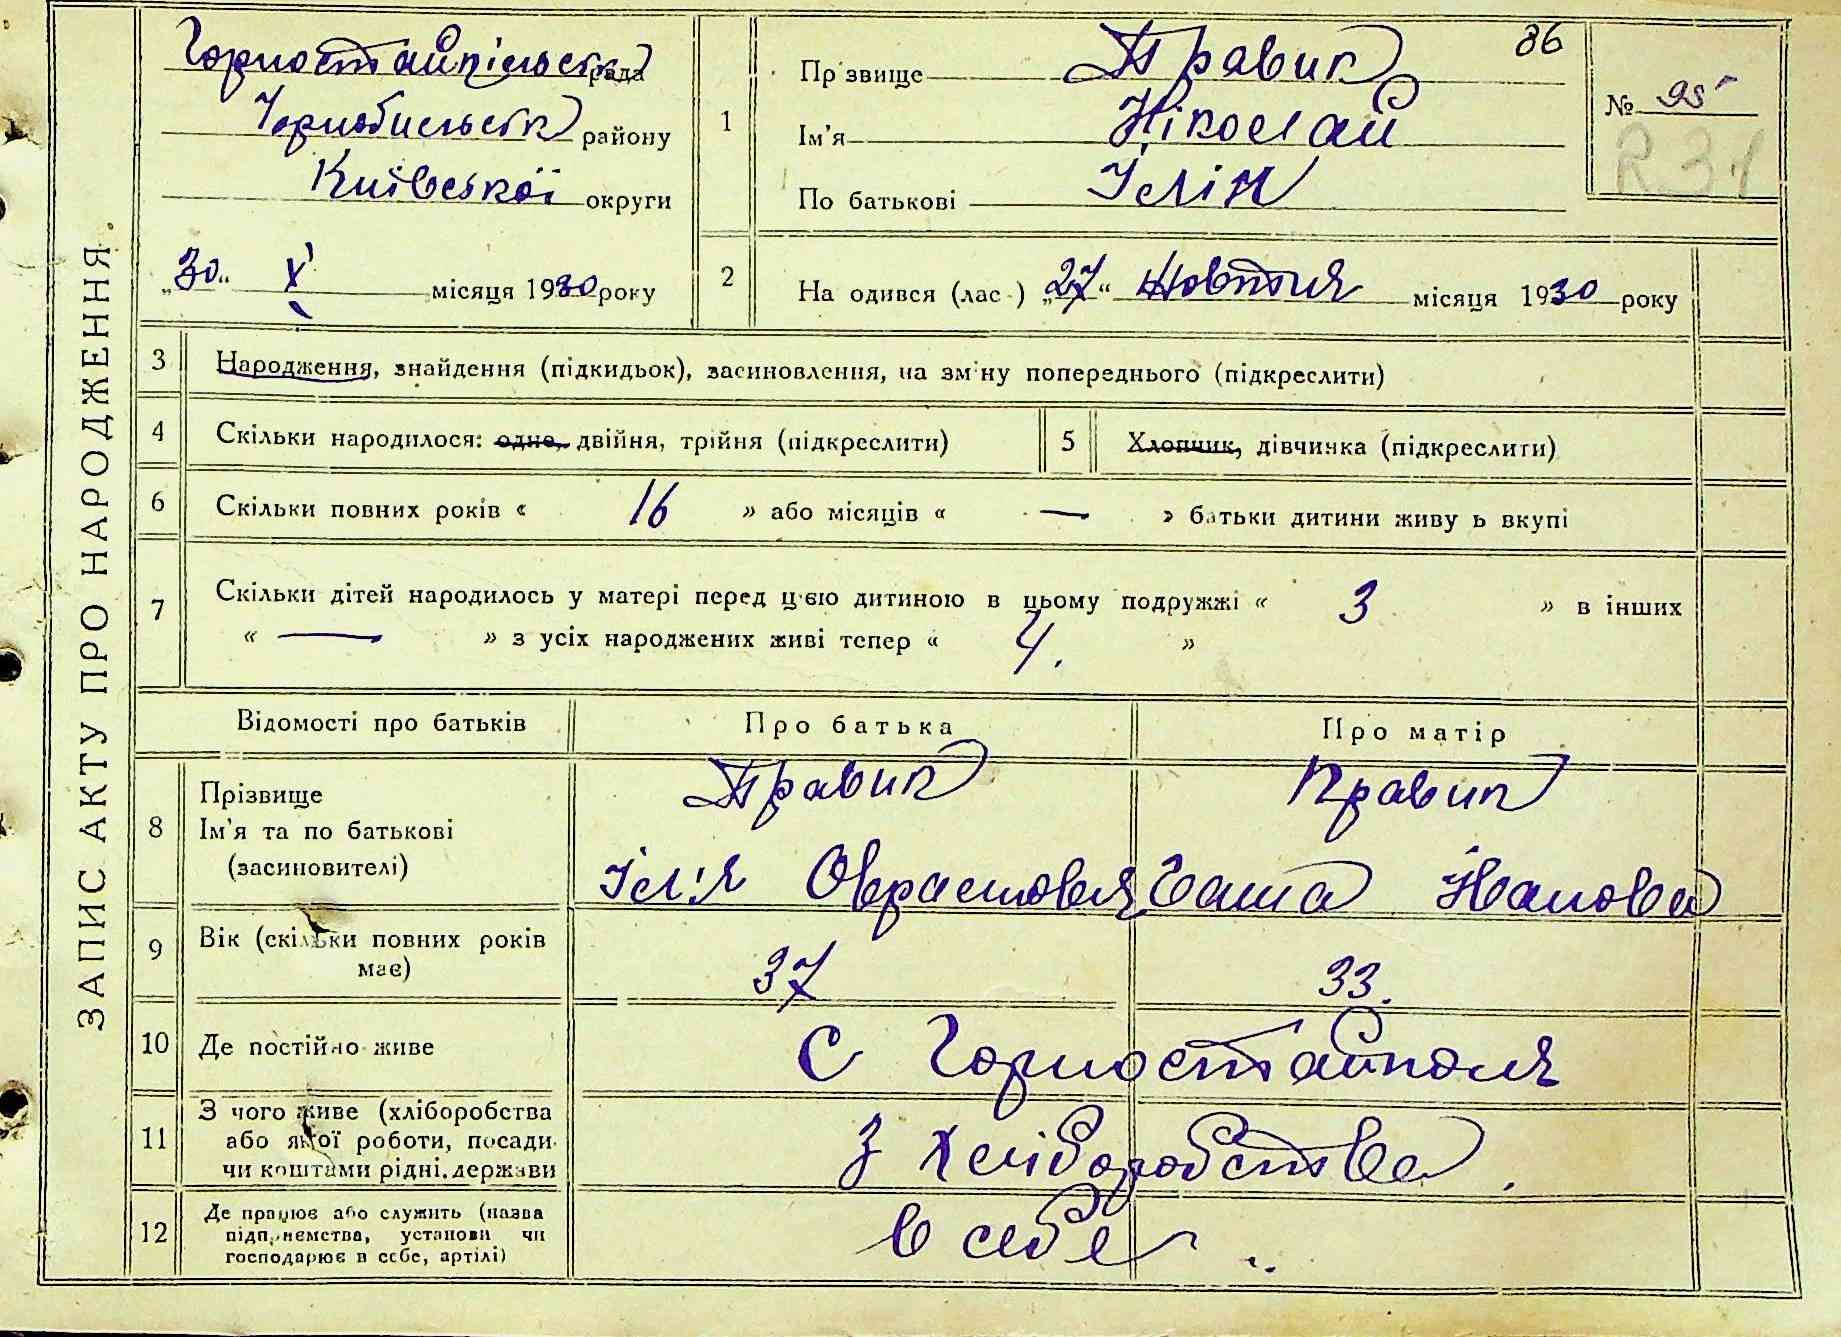 ЗАПИС АКТУ ПРО НАРОДЖЕННЯ.
86
Горностайпільськ рада
Чорнобильськ району
Київської округи
„30“ X місяця 1930 року
1
Прізвище Правик
Ім'я Ніколай
По батькові Ілін
№ 95
R 31
2
На одився (лас ) „27“ Жовтня місяця 1930 року
3 Народження, знайдення (підкидьок), засиновлення, на зміну попереднього (підкреслити)
4 Скільки народилося: одно, двійня, трійня (підкреслити)
5 Хлопчик, дівчинка (підкреслити)
6 Скільки повних років « 16 » або місяців « — » батьки дитини живу ь вкупі
7 Скільки дітей народилось у матері перед цією дитиною в цьому подружжі « 3 » в інших
« — » з усіх народжених живі тепер « 4. »
Відомості про батьків Про батька Про матір
8 Прізвище
Ім'я та по батькові
(засиновителі)
Правик Правик
Ілля Іванова
9 Вік (скільки повних років
має)
37 33.
10 Де постійно живе С Горностайполя
11 З чого живе (хліборобства
або якої роботи, посади
чи коштами рідні, держави
З хліборобства.
12 Де працює або служить (назва
підприємства, установи чи
господарює в себе, артілі)
в себе